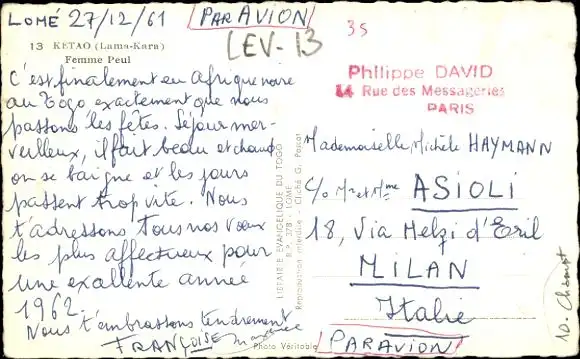 LOMÉ 27/12/61
PAR AVION
LEV-13
35
13 KETAO (Lama-Kara)
Femme Peul
C'est finalement en Afrique noire
au Togo exactement que nous
passons les fêtes. Séjour mer-
veilleux, il fait beau et chaud
on se baigne et les jours
passent trop vite. Nous
t'adressons tous nos vœux
les plus affectueux pour
une exallente année
1962.
Nous t'embrassons tendrement
FRANÇOISE
Photo Véritable
LIBRAIRIE EVANGELIQUE DU TOGO
B.P. 378 - LOME
Reproduction interdite - Cliché G. Pascot
Philippe DAVID
14 Rue des Messageries
PARIS
Mademoiselle Michèle HAYMANN
c/o Mr et Mme ASIOLI
18, Via Melzi d'Eril
MILAN
Italie
PAR AVION